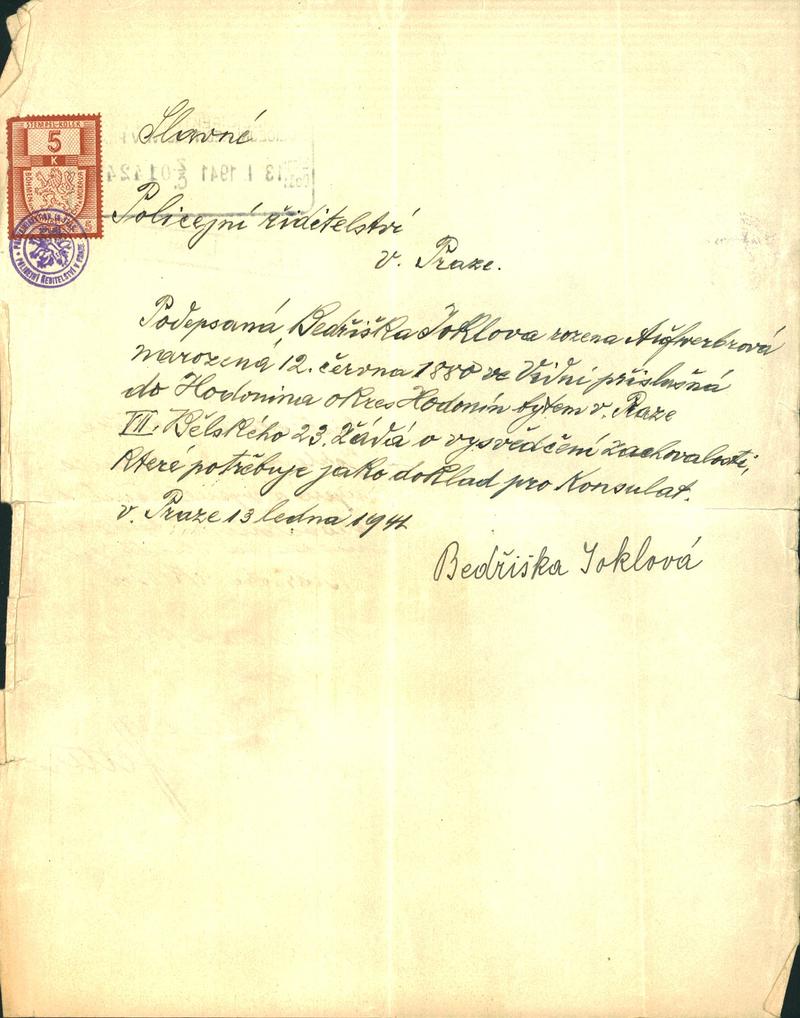 STEMPEL-KOLEK
5
K
Slavné
13 I 1941
Policejní řiditelství
v. Praze.
Podepsaná, Bedřiška Joklova rozena
narozená 12. června 1880 ve Vídni příslušná
do Hodonina okres Hodonín bytem v. Praze
VII. Bělského 23. Žádá o vysvědčení zachovalosti,
které potřebuje jako doklad pro Konsulat.
v. Praze 13 ledna 1941
Bedřiška Joklová